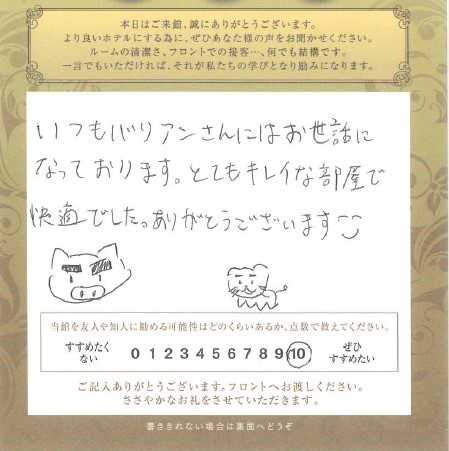 本日はご来館、誠にありがとうございます。
より良いホテルにする為に、ぜひあなた様の声をお聞かせください。
ルームの清潔さ、フロントでの接客…、何でも結構です。
一言でもいただければ、それが私たちの学びとなり励みになります。
いつもバリアンさんにはお世話に
なっております。とてもキレイな部屋で
快適でした。ありがとうございます
当館を友人や知人に勧める可能性はどのくらいあるか、点数で教えてください。
すすめたくない 0 1 2 3 4 5 6 7 8 9 10 ぜひすすめたい
ご記入ありがとうございます。フロントへお渡しください。
ささやかなお礼をさせていただきます。
書ききれない場合は裏面へどうぞ